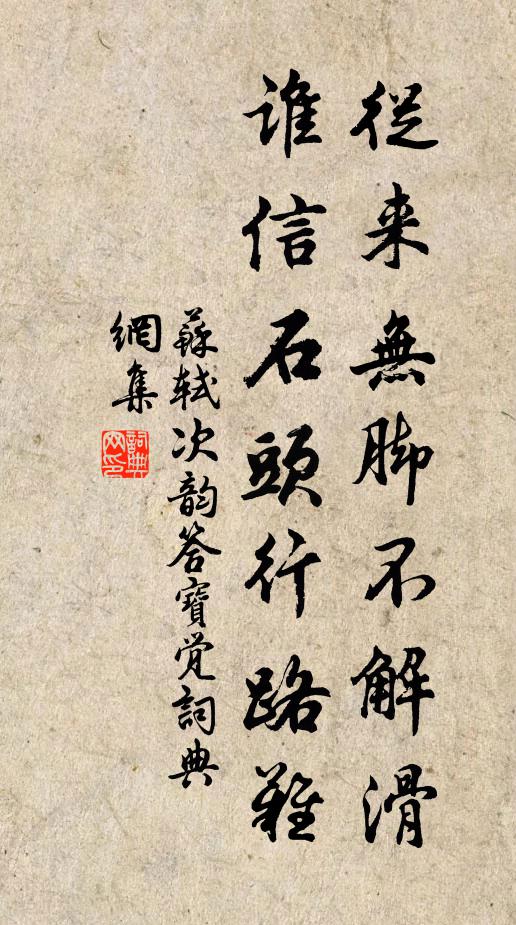 從来無脚不解滑
誰信石頭行路難
蘇軾次韵答寶覺詞典
網集
詞典
网印